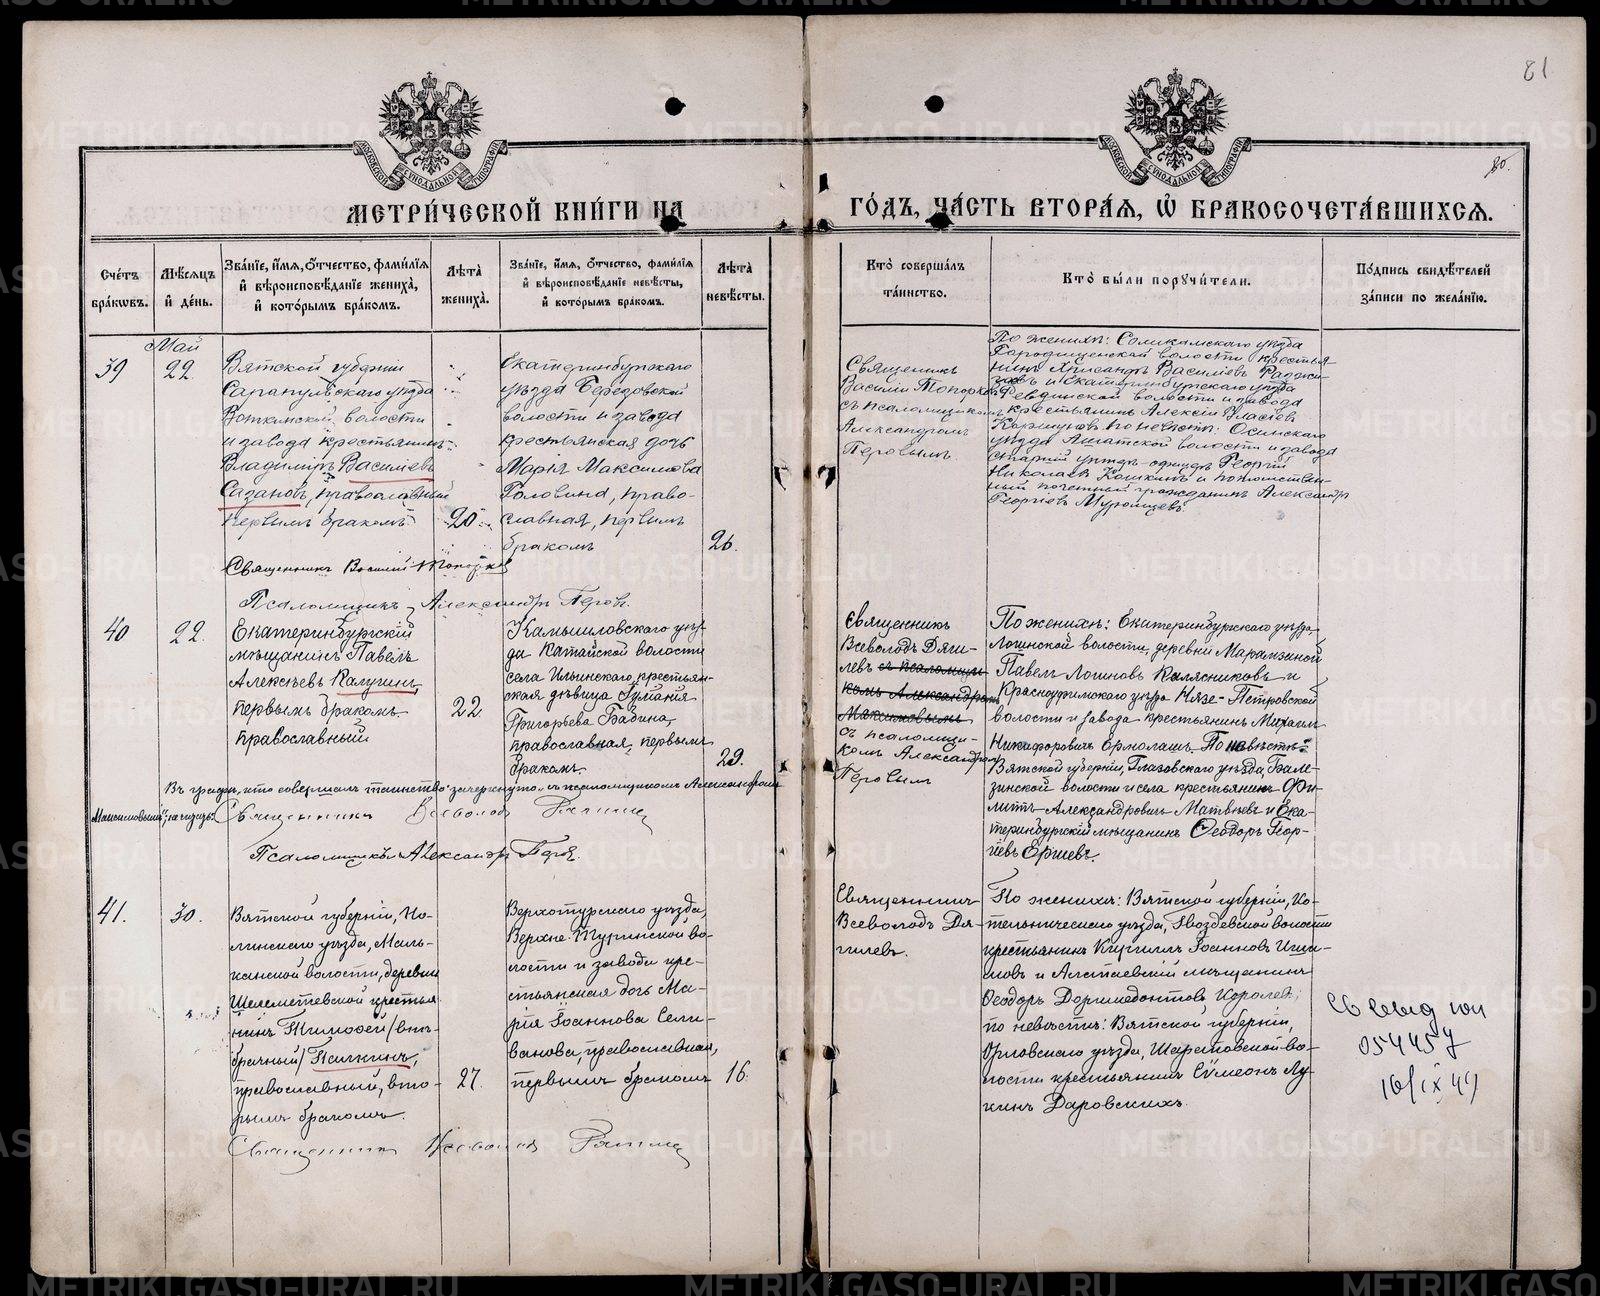 81
80.
МЕТРИ́ЧЕСКОЙ КНИ́ГИ НА
ГО́ДЪ, ЧА́СТЬ ВТОРА́Я, Ѡ БРАКОСОЧЕТА́ВШИХСЯ.
Сче́тъ бра́кѡвъ.
Мѣ́сяцъ и де́нь.
Зва́нїе, и́мя, ѻ́тчество, фами́лїя
и҆ вѣроисповѣ́данїе жениха̀,
и҆ кото́рымъ бра́комъ.
Лѣта̀ жениха̀.
Зва́нїе, и́мя, ѻ́тчество, фами́лїя
и҆ вѣроисповѣ́данїе невѣ́сты,
и҆ кото́рымъ бра́комъ.
Лѣта̀ невѣ́сты.
Кто̀ соверша́лъ
та́инство.
Кто̀ бы́ли поручи́тели.
По́дпись свидѣ́телей
за́писи по жела́нїю.
Май
39
22
Вятской губерніи
Сарапульскаго уѣзда
Воткинской волости
и завода крестьянинъ
Владиміръ Василіевъ
Сазановъ, православный
первымъ бракомъ
20
Екатеринбургскаго
уѣзда Березовской
волости и завода
крестьянская дочь
Марія Максимова
Головина, право-
славная, первымъ
бракомъ
26.
Священникъ
Василій Топорковъ
съ псаломщикомъ
Александромъ
Перовымъ.
По женихѣ: Соликамскаго уѣзда
Городищенской волости крестья-
нинъ Хрисанфъ Василіевъ
и Екатеринбургскаго уѣзда
Ревдинской волости и завода
крестьянинъ Алексій Власовъ
Коршуновъ по невѣстѣ: Осинскаго
уѣзда Ашапской волости и завода
старшій унтеръ-офицеръ Георгій
Николаевъ Кошкинъ и потомствен-
ный почетный гражданинъ Александръ
Георгіевъ Муромцевъ.
Священникъ Василій Топорковъ
Псаломщикъ Александръ Перовъ.
40
22.
Екатеринбургскій
мѣщанинъ Павелъ
Алексѣевъ Калугинъ,
первымъ бракомъ
православный
22
Камышловскаго уѣз-
да Катайской волости
села Ильинскаго, крестьян-
ская дѣвица Іуліанія
Григорьева Бабина,
православная, первымъ
бракомъ.
29.
Священникъ
Всеволодъ Дяги-
левъ съ псаломщи-
комъ Александромъ
Максимовымъ
съ псаломщи-
комъ Александромъ
Перовымъ
По женихѣ: Екатеринбургскаго уѣзда,
Логинской волости, деревни Марамзиной
Павелъ Логиновъ Калясниковъ и
Красноуфимскаго уѣзда Нязе-Петровской
волости и завода крестьянинъ Михаилъ
Никифоровичъ Ермолаш. По невѣстѣ:
Вятской губерніи, Глазовскаго уѣзда, Бале-
зинской волости и села крестьянинъ Фи-
липпъ Александровичъ Матвѣевъ и Ека-
теринбургскій мѣщанинъ Ѳеодоръ Геор-
гіевъ Ершевъ.
Въ графѣ, кто совершалъ таинство зачеркнуто „съ псаломщикомъ Александромъ
Максимовымъ"
Священникъ Всеволодъ Дягилевъ
Псаломщикъ Александръ Перовъ.
41.
30.
Вятской губерніи, Но-
линскаго уѣзда, Маль-
канской волости, деревни
Шелеметевской крестья-
нинъ Тимоѳей /внѣ-
брачный/ Палкинъ,
православный, вто-
рымъ бракомъ.
27.
Верхотурскаго уѣзда,
Верхне-Туринской во-
лости и завода кре-
стьянская дочь Ма-
рія Іоаннова Сели-
ванова, православная,
первымъ бракомъ
16.
Священникъ
Всеволодъ Дя-
гилевъ.
По женихѣ: Вятской губерніи, Ко-
тельническаго уѣзда, Гвоздевской волости
крестьянинъ Кириллъ Іоанновъ Иши-
мовъ и Алапаевскій мѣщанинъ
Ѳеодоръ Доримедонтовъ Королевъ;
по невѣстѣ: Вятской губерніи,
Орловскаго уѣзда, Шараповской во-
лости крестьянинъ Сѵмеонъ Лу-
кинъ Даровскихъ.
054457
16/IX 49
Священникъ Всеволодъ Дягилевъ